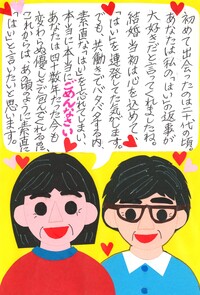 初めて出会ったのは二十代の頃。
あなたは私の「はい」の返事が
大好きだと言ってくれましたね。
結婚当初は心を込めて、
「はい」を連発してた気がします。
でも、共働きでバタバタする内、
素直な「はい」を忘れてしまい、
本当に本当にごめんなさい。
あなたは四十数年たった今も、
変わらぬ優しさで包んでくれるね。
これからは、あの頃のように素直に
「はい」と言いたいと思います。